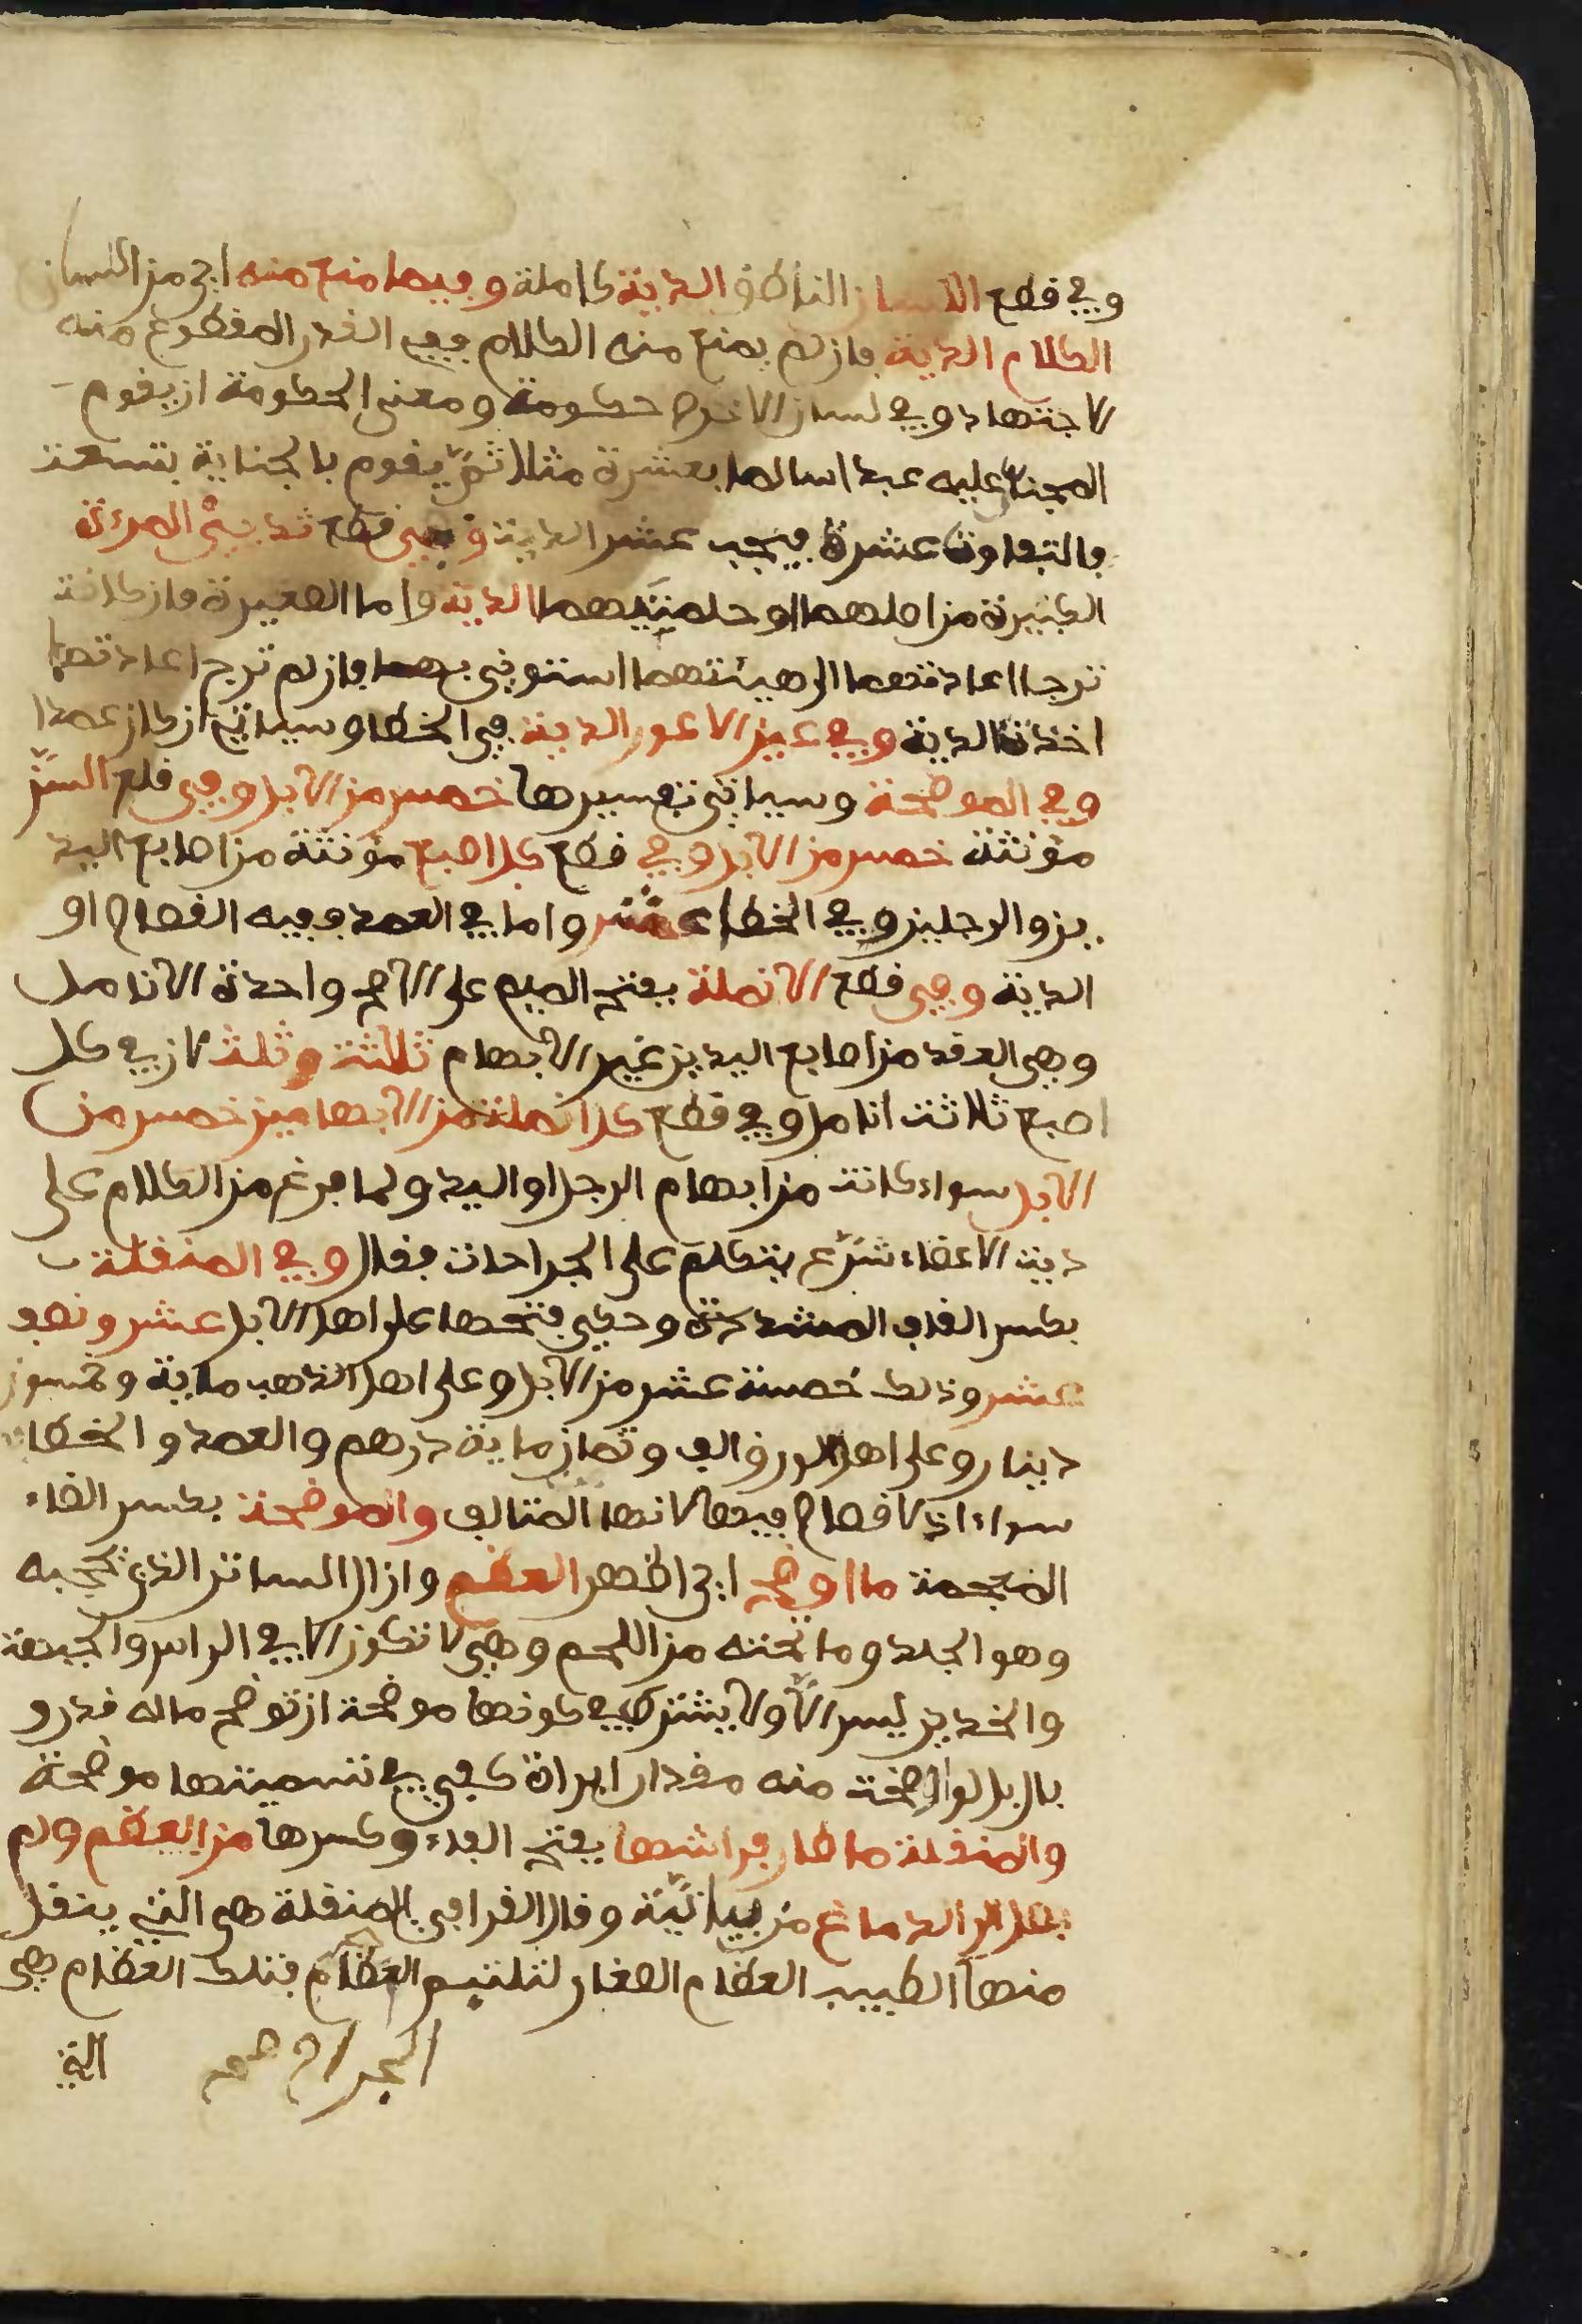 وفي قطع اللسان الناطق الدية كاملة وفيما منع منه اي من اللسان
الكلام الدية فان لم يمنع منه الكلام ففي القدر المقطوع منه
الاجتهاد وفي لسان الاخرص حكومة ومعنى الحكومة ان يقوم
المجنى عليه عبدا سالما بعشرة مثلا ثم يقوم بالجناية بتسعة
فالتفاوت عشرة فيجب عشر الدية وفي قطع ثديي المرءة
الكبيرة من اصلهما او حلمتيهما الدية واما الصغيرة فان كانت
ترجا اعادتهما الى هيئتهما استوني بهما فان لم ترج اعادتها
اخذت الدية وفي عين الاعور الدية في الخطا وسياتي ان كان عمدا
وفي الموضحة وسياتي تفسيرها خمس من الابل وفي قلع السن
مؤنثة خمس من الابل وفي قطع كل اصبع مؤنثة من اصابع اليد
ين والرجلين وفي الخطا عشر واما في العمد ففيه القصاص او
الدية وفي قطع الانملة بفتح الميم على الاصح واحدة الانامل
وهي العقد من اصابع اليدين غير الابهام ثلاثة وثلث لان في كل
اصبع ثلاثة انامل وفي قطع كل انملة من الابهامين خمس من
الابل سواء كانت من ابهام الرجل او اليد ولما فرغ من الكلام على
دية الاعضاء شرع يتكلم على الجراحات فقال وفي المنقلة
بكسر القاف المشددة وحكي فتحها على اهل الابل عشر ونصف
عشر وذلك خمسة عشر من الابل وعلى اهل الذهب ماية وخمسون
دينار وعلى اهل الورق الف وثمان ماية درهم والعمد والخطا
سواء اذ لا قصاص فيها لانها المتالف والموضحة بكسر الضاء
المعجمة ما اوضح اي اظهر العظم وازال الساتر الذي يحجبه
وهو الجلد وما تحته من اللحم وهي لا تكون الا في الراس والجبهة
والخدين ليس الا ولا يشترط في كونها موضحة ان توضح ماله قدر و
بال بل لو اوضحت منه مقدار ابراة كفي في تسميتها موضحة
والمنقلة ما طار فراشها بفتح الفاء وكسرها من العظم ولم
يصل الى الدماغ من بيانية وقال القرافي المنقلة هي التي ينقل
منها الطبيب العظام الصغار لتلتيم العظام فتلك العظام هي
الجراح صح
التي